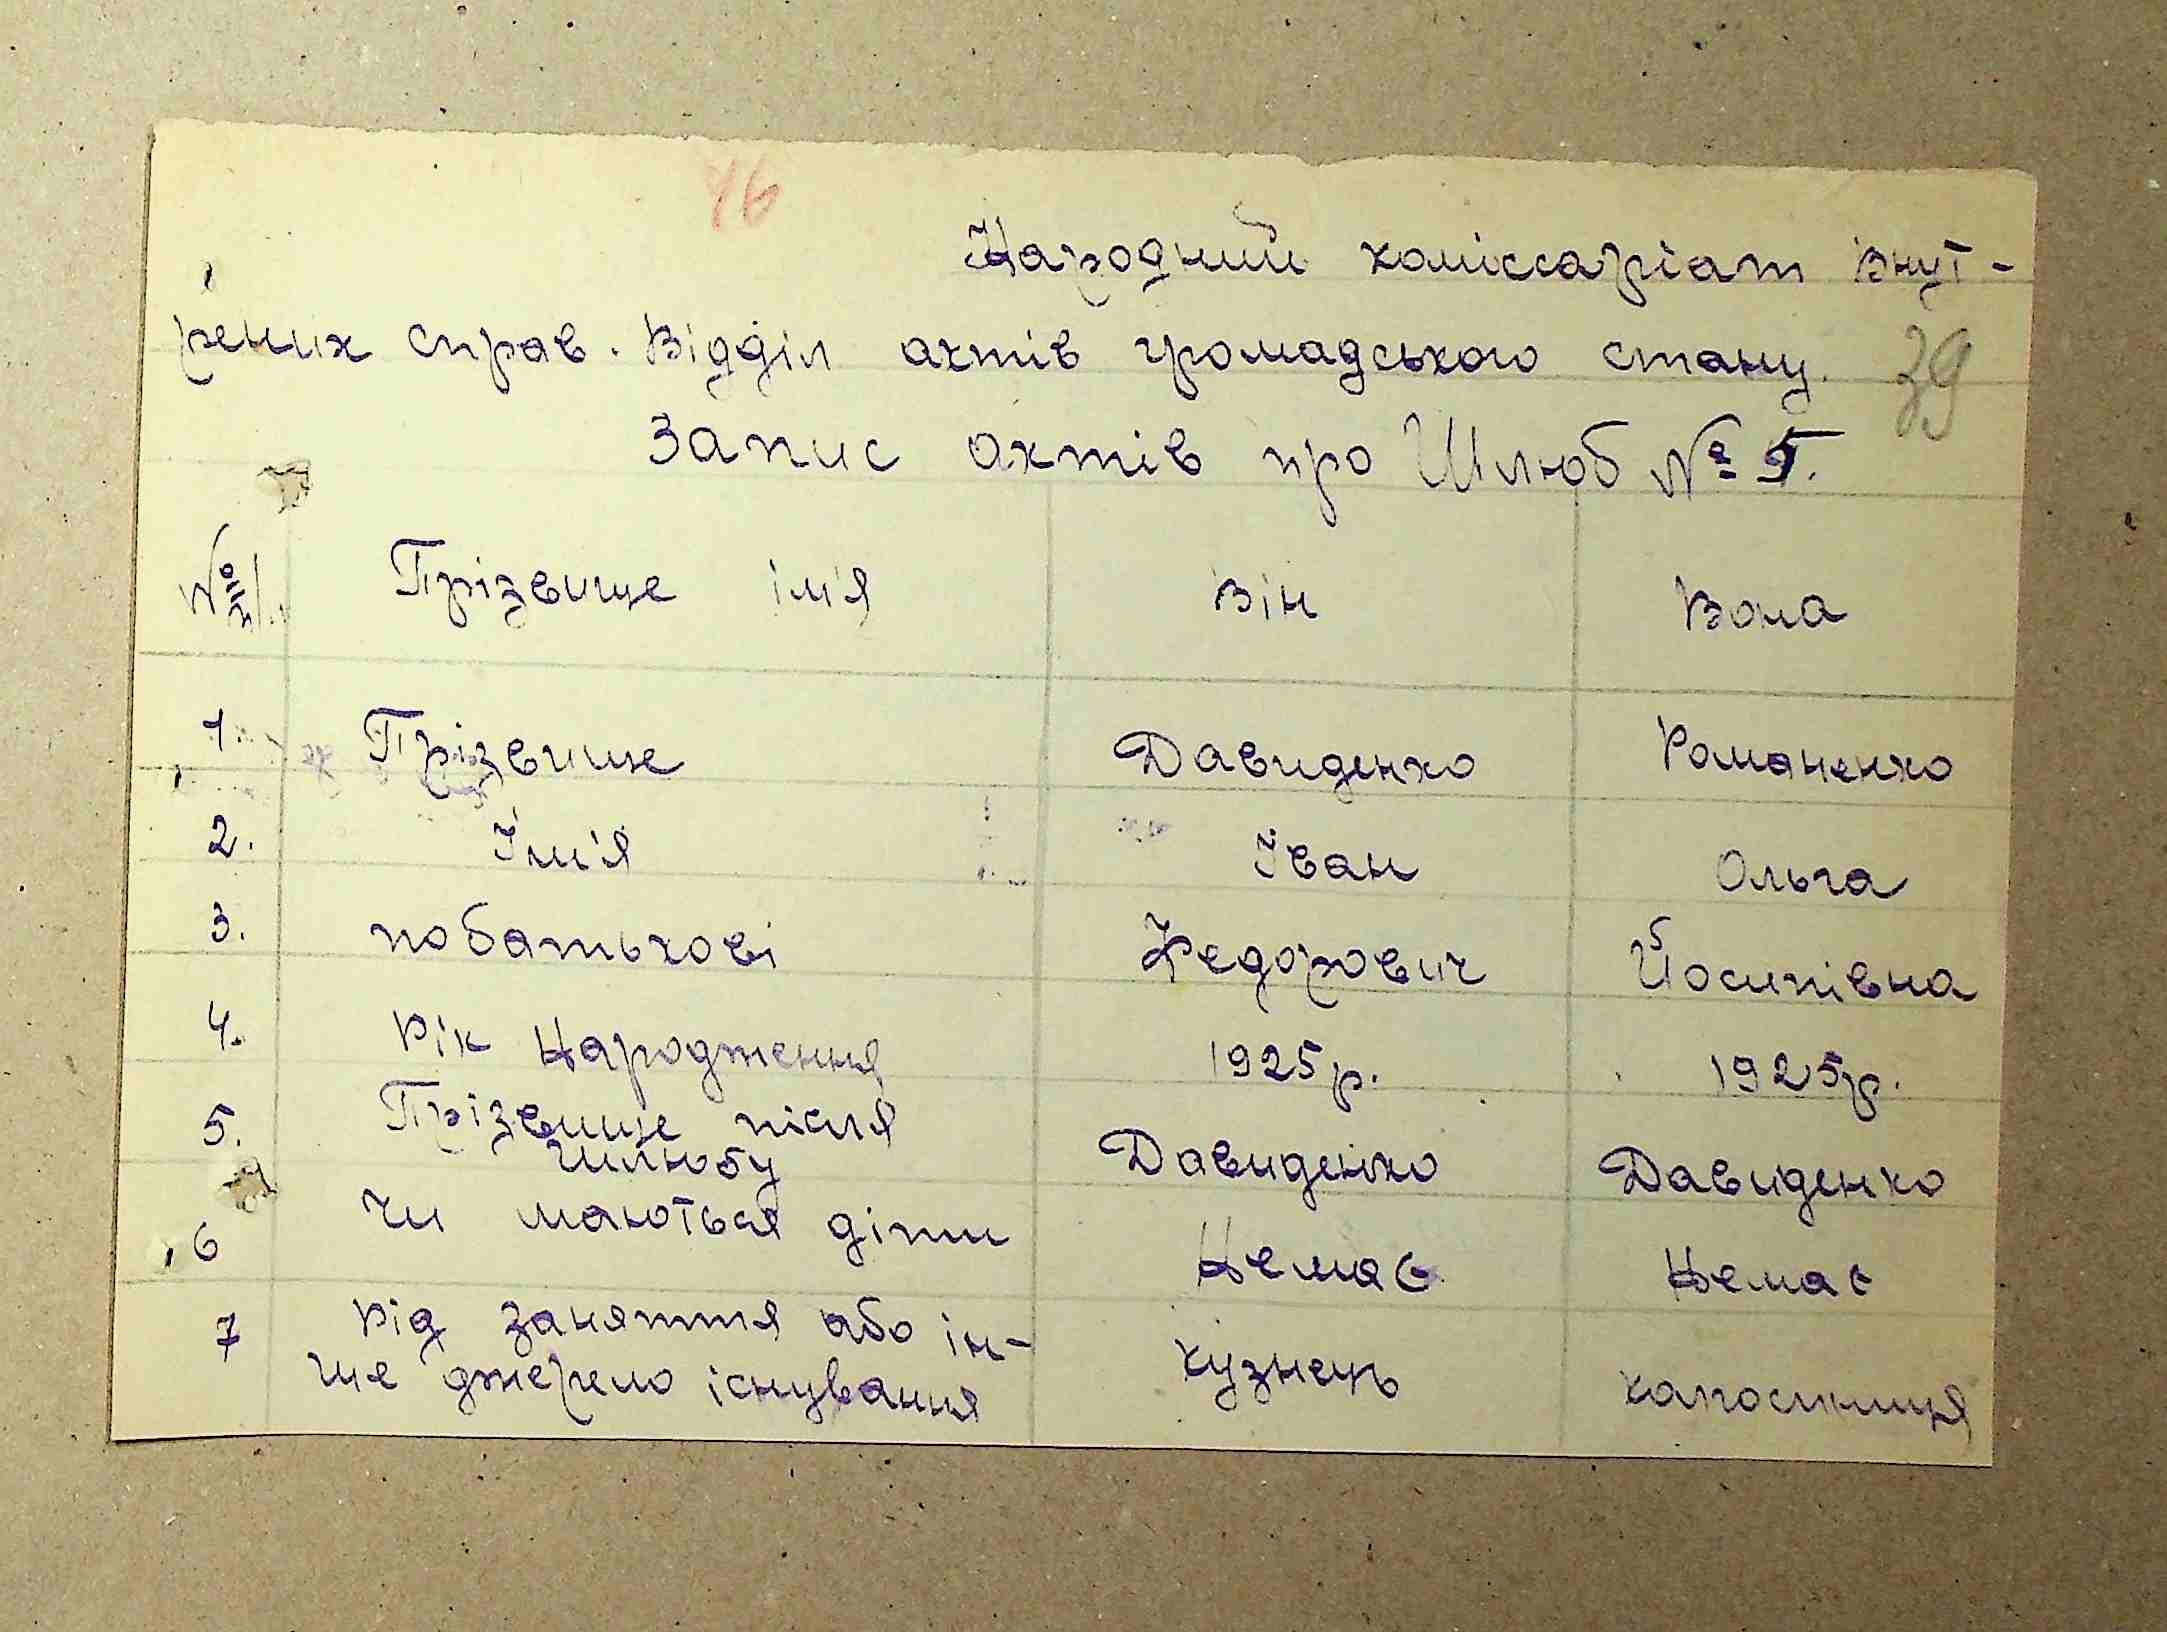 76
Народний коміссаріат внут-
рених справ. Відділ актів громадського стану.
39
Запис актів про Шлюб № 5.
№ п/п. Прізвище ім'я Він Вона
1. Прізвище Давиденко Романенко
2. Імʼя Іван Ольга
3. по батькові Федорович Йосипівна
4. Рік народження 1925р. 1925р.
5. Прізвище після
шлюбу Давиденко Давиденко
6 Чи мається діти Немає Немає
7 Рід заняття або ін-
ше джерело існування кузнець колгосниця